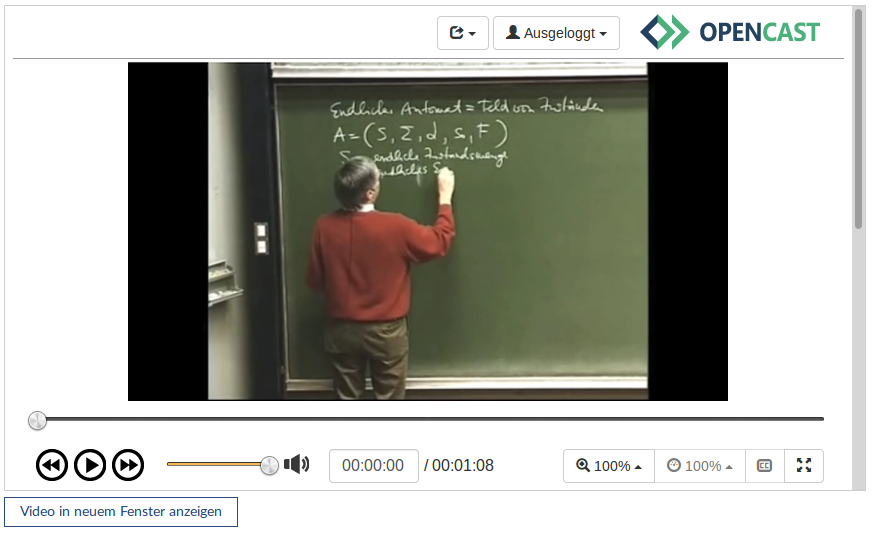 Ausgeloggt
OPENCAST
Endlicher Automat = Feld von Zuständen
A = (S, Σ, d, s₀, F)
S endliche Zustandsmenge
endliches
00:00:00 / 00:01:08
100% 100% CC
Video in neuem Fenster anzeigen